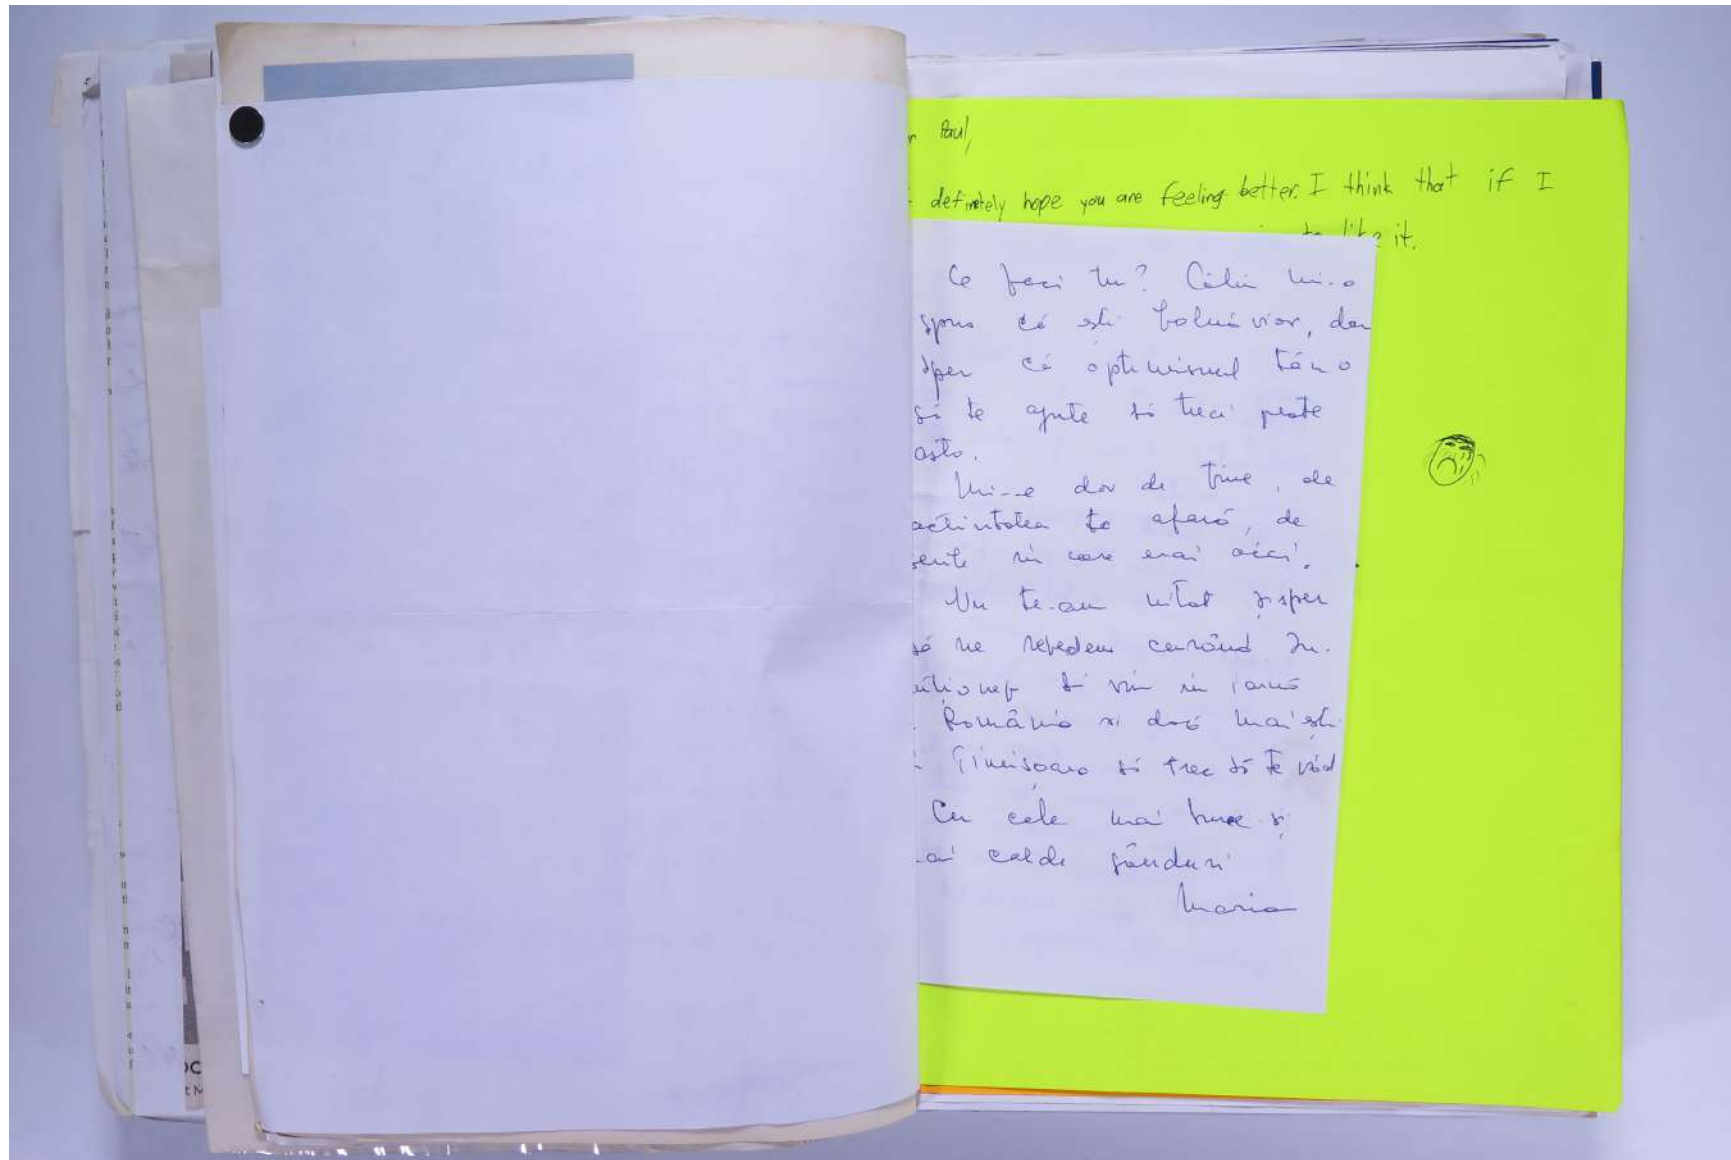 Paul,
definetely hope you are feeling better. I think that if I
to like it.
Ce faci tu? Călin mi-a
spus că ești bolnăvior, dar
sper că optimismul tău o
să te ajute să treci peste
asta.
Mi-e dor de tine, de
activitatea ta afară, de
în care erai aici.
Nu te-am uitat și sper
să ne revedem curând. In-
să vin in iarnă
România și dacă mai ești
Timișoara să trec să te văd
Cu cele mai bune și
calde gânduri
Maria